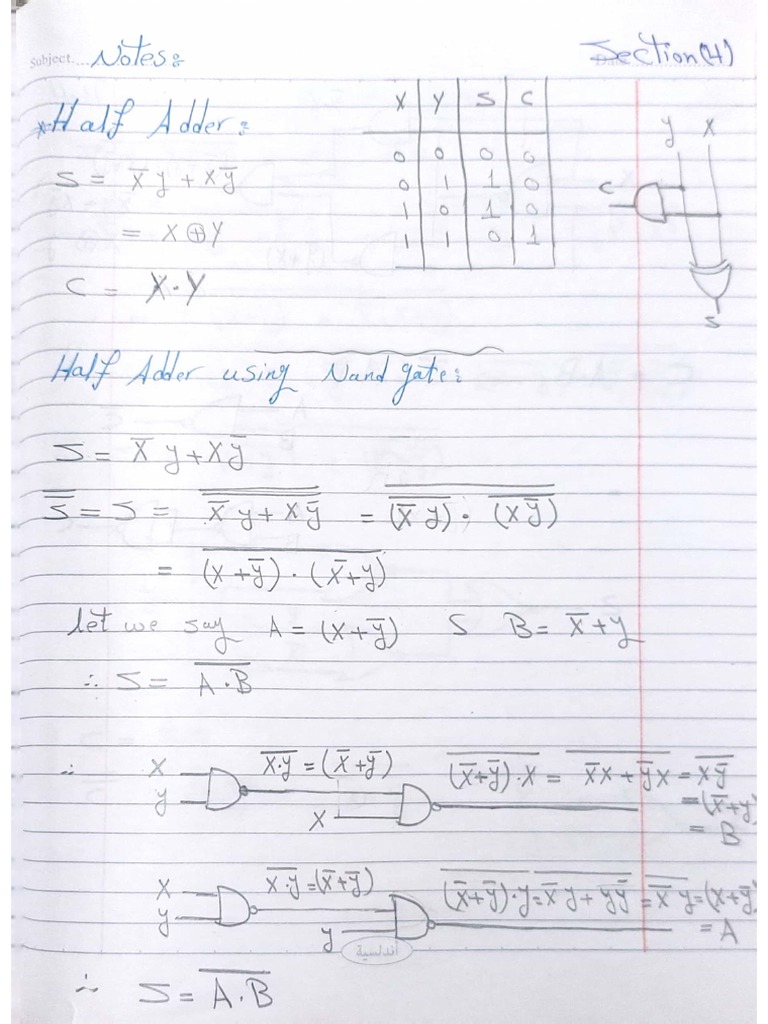 Subject.... Notes: Section(4)
*Half Adder:
X Y S C
0 0 0 0
0 1 1 0
1 0 1 0
1 1 0 1
y x
C
S
S = x̅y + xy̅
= X ⊕ Y
C = X·Y
Half Adder using Nand gate:
S = x̅y + xy̅
S̿ = S = \overline{\overline{x̅y + xy̅}} = \overline{\overline{(x̅y)} · \overline{(xy̅)}}
= \overline{(x + y̅) · (x̅ + y)}
let we say A = (x + y̅) S B = x̅ + y
∴ S = \overline{A · B}
∴ X \overline{x·y} = (x̅ + y̅) \overline{(x̅ + y̅)·x} = \overline{x̅x + y̅x} = \overline{xy̅}
y = (x̅ + y)
X = B
X \overline{x·y} = (x̅ + y̅) \overline{(x̅ + y̅)·y} = \overline{x̅y + yy̅} = \overline{x̅y} = (x + y̅)
y = A
y
اندلسية
∴ S = \overline{A · B}